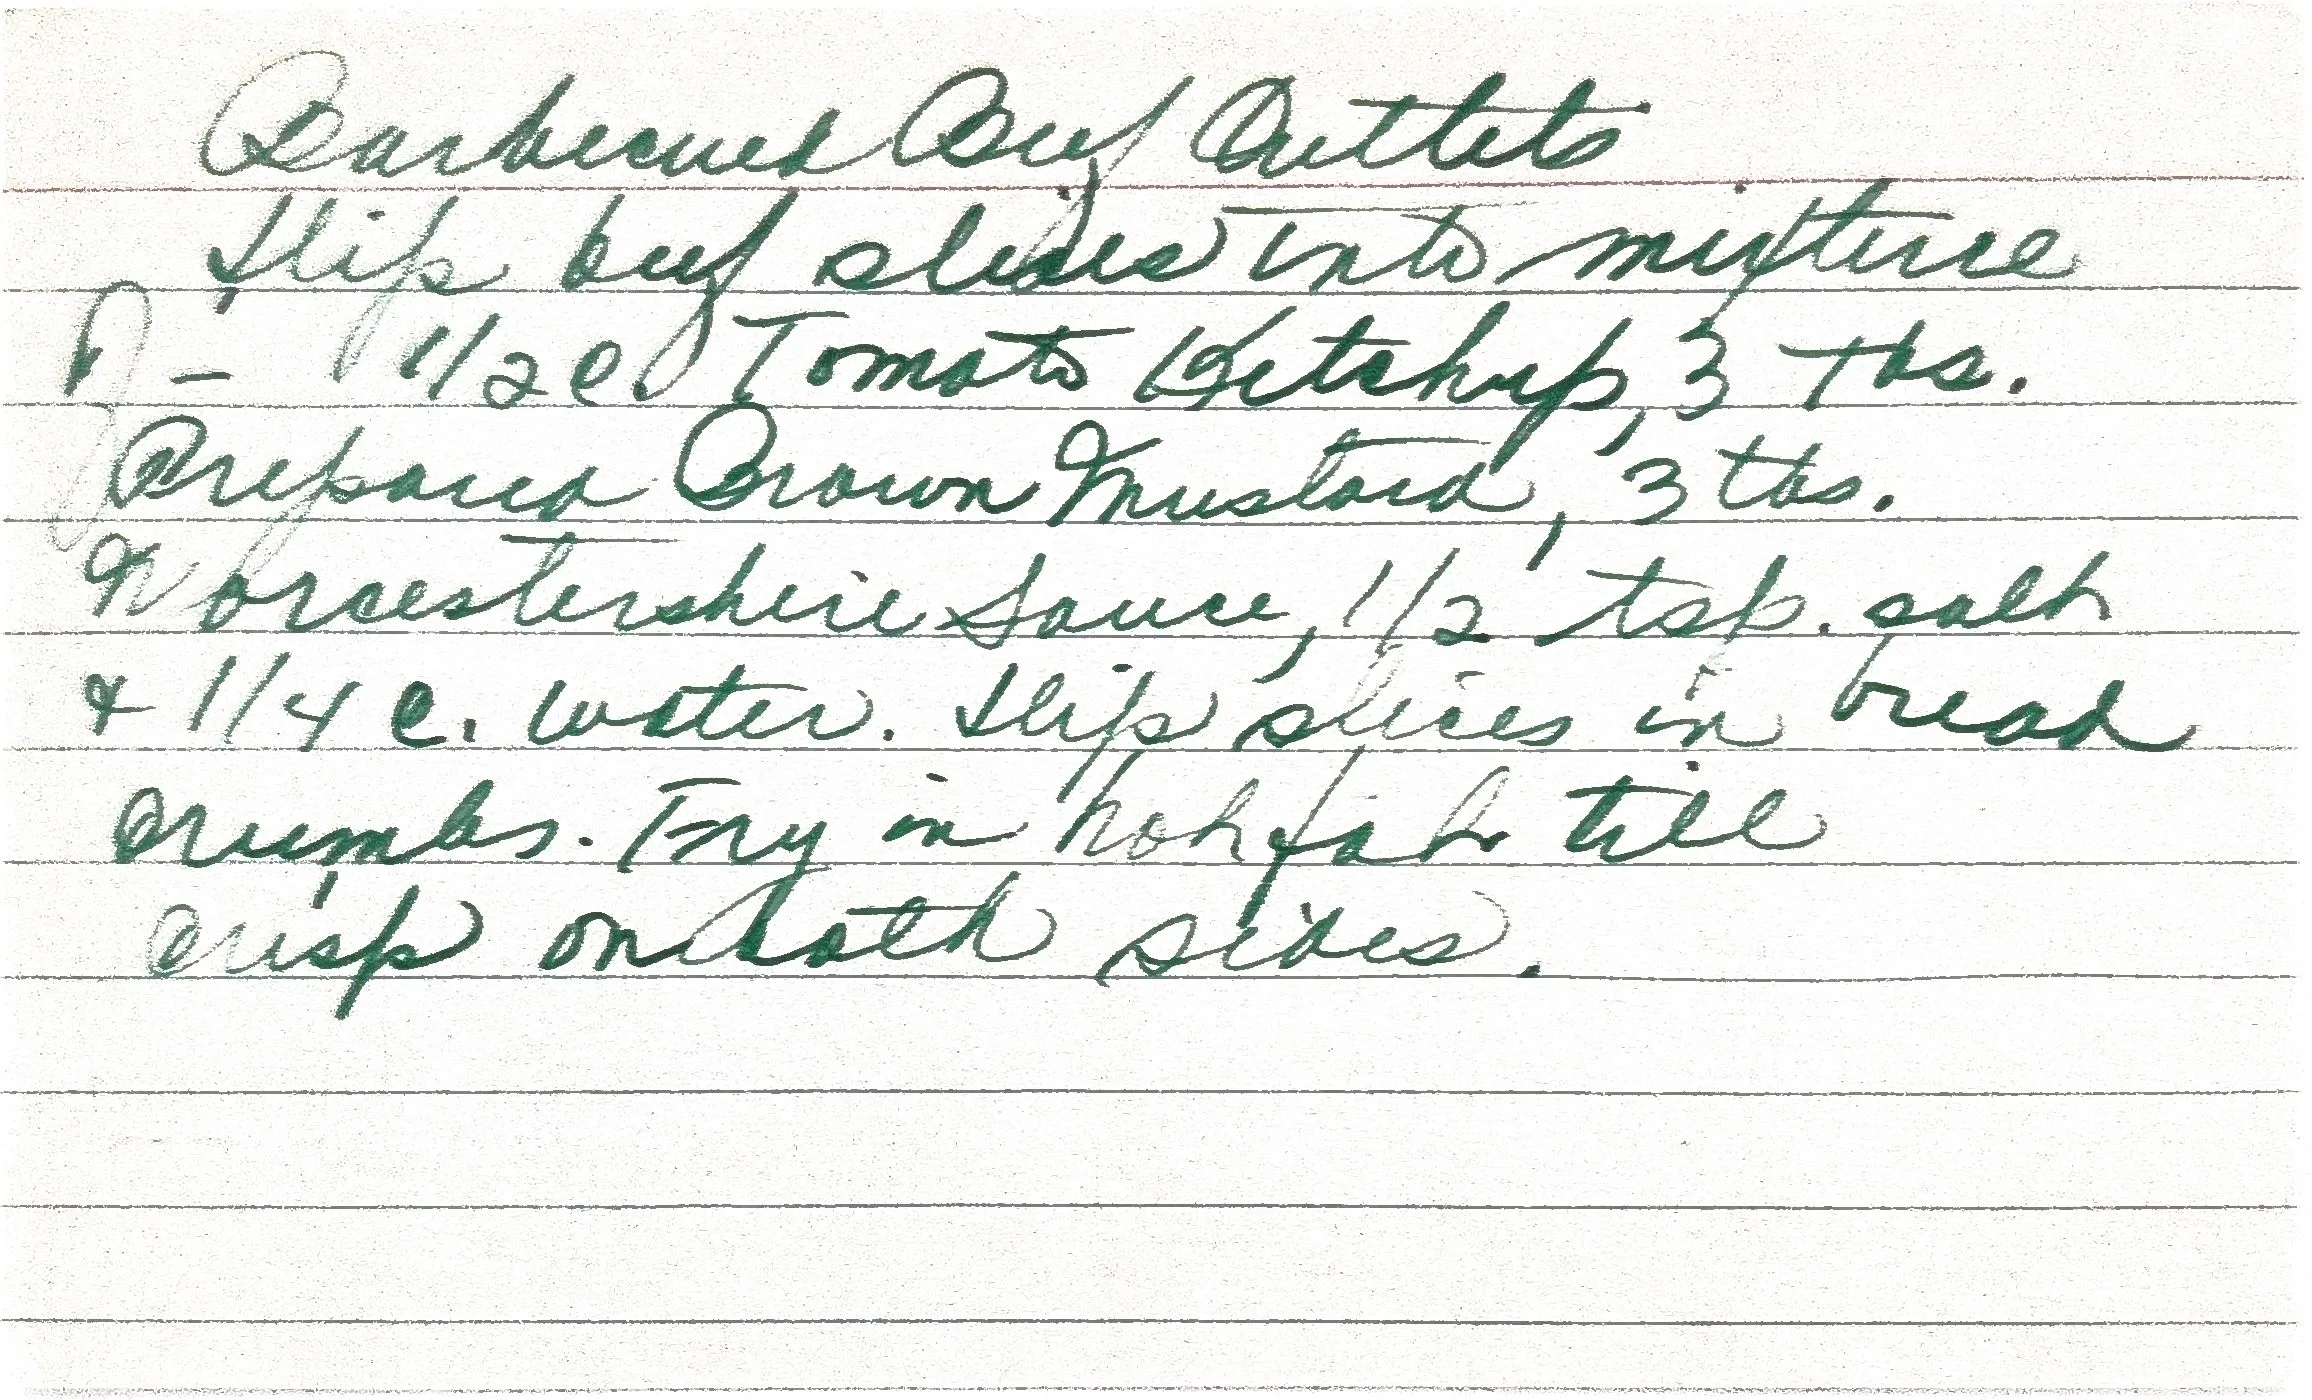 Barbecued Beef Cutlets
Slip beef slices into mixture
of - 1/2 c. Tomato Ketchup, 3 tbs.
Prepared Brown Mustard, 3 tbs.
Worcestershire Sauce, 1/2 tsp. salt
& 1/4 c. water. Slip slices in bread
crumbs. Fry in hot fat till
crisp on both sides.